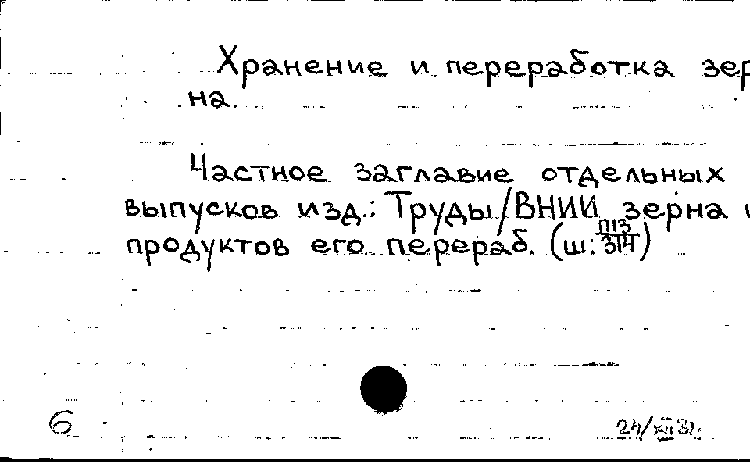 Хранение и переработка зер
на.
Частное заглавие отдельных
выпусков изд.: Труды/ВНИИ зерна и
продуктов его перераб. (ш: П13/314)
6